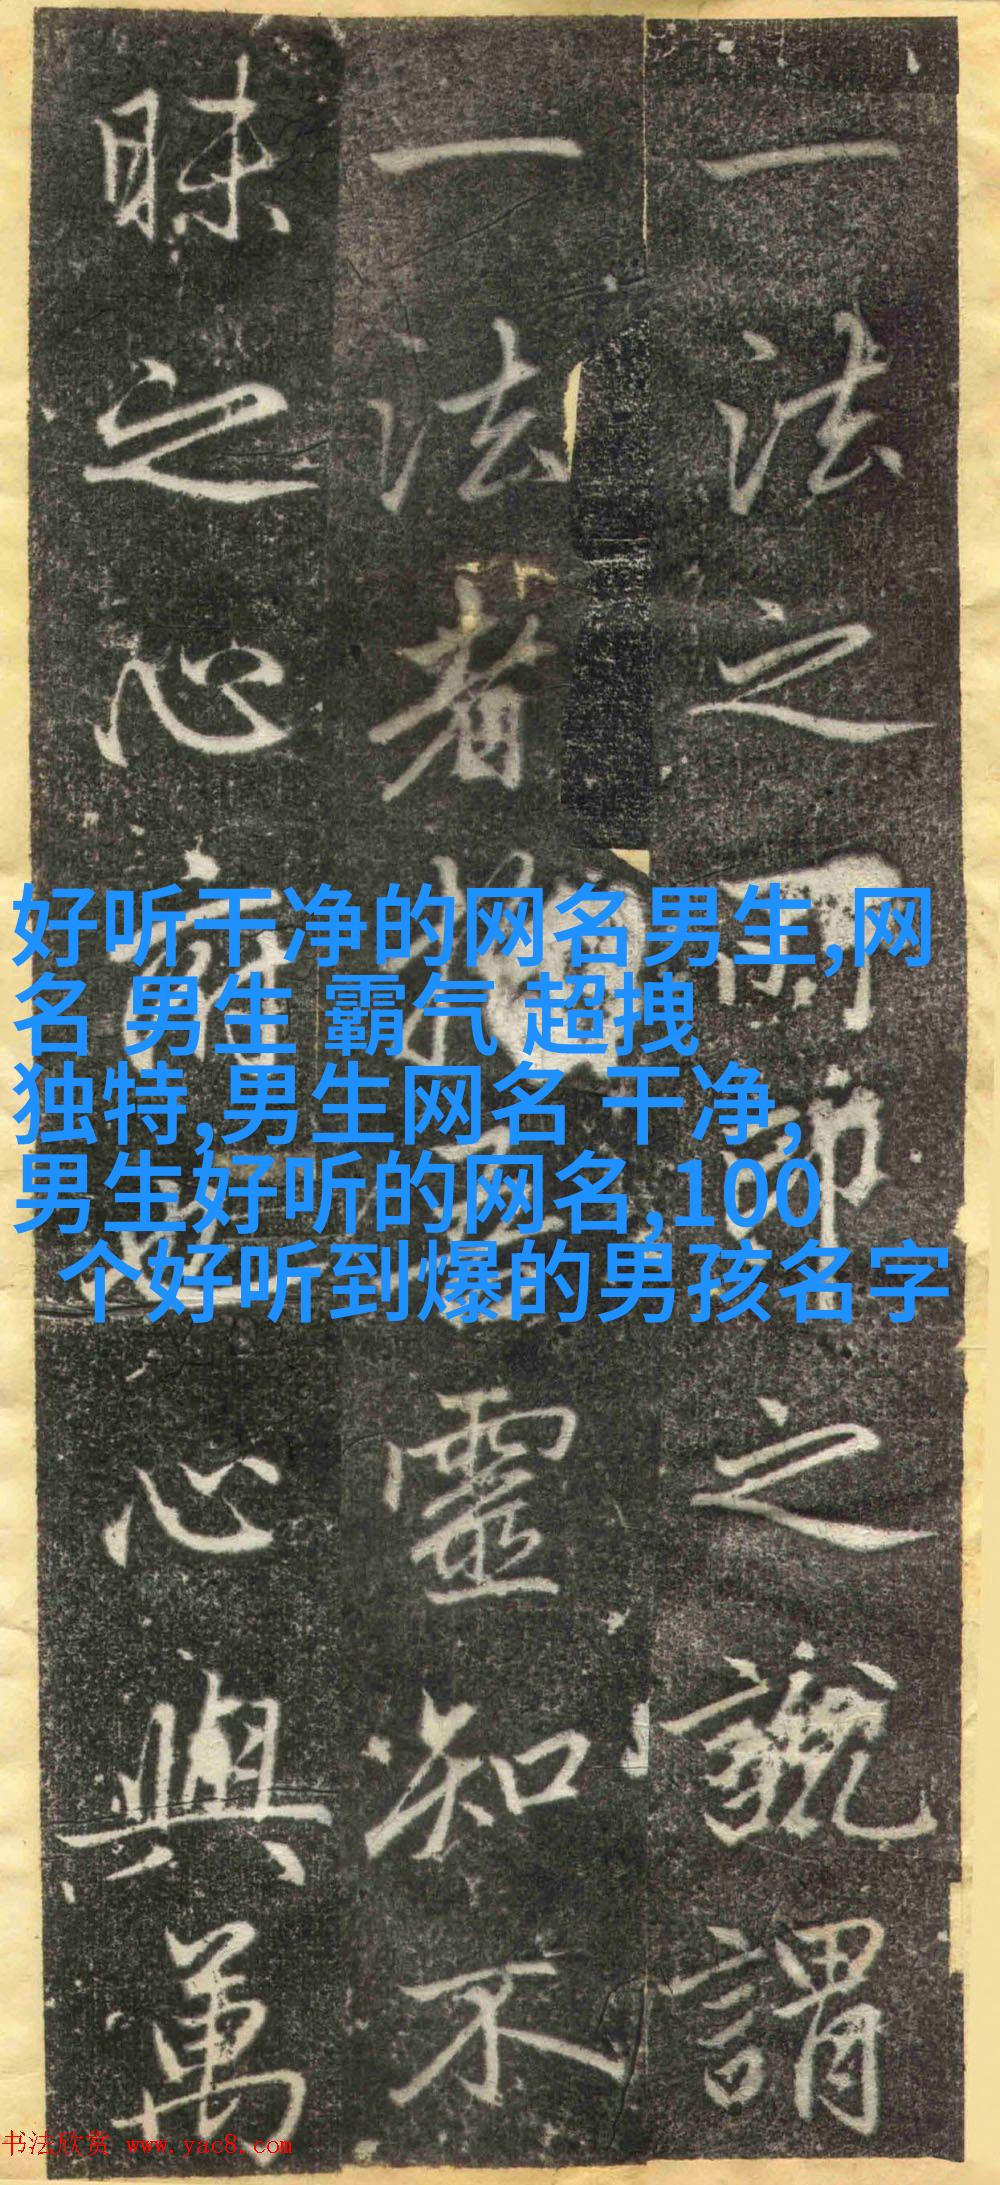 一法之之說謂
一法者靈知不
昧之心心與萬
好听干净的网名男生,网
名 男生 霸气 超拽
独特,男生网名 干净,
男生好听的网名,100
个好听到爆的男孩名字
书法欣赏 www.yac8.com